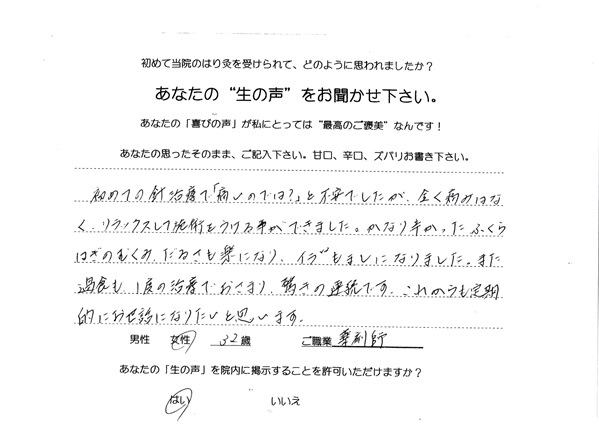 初めて当院のはり灸を受けられて、どのように思われましたか？
あなたの“生の声”をお聞かせ下さい。
あなたの「喜びの声」が私にとっては“最高のご褒美”なんです！
あなたの思ったそのまま、ご記入下さい。甘口、辛口、ズバリお書き下さい。
初めての針治療で「痛いのでは?」と不安でしたが、全く痛みはな
く、リラックスして施術をうける事ができました。かなり辛かったふくら
はぎのむくみ、だるさも楽になり、イライラもましになりました。また
過食も、1度の治療でおさまり、驚きの連続です。これからも定期
的にお世話になりたいと思います。
男性 女性 32歳 ご職業 薬剤師
あなたの「生の声」を院内に掲示することを許可いただけますか？
はい いいえ